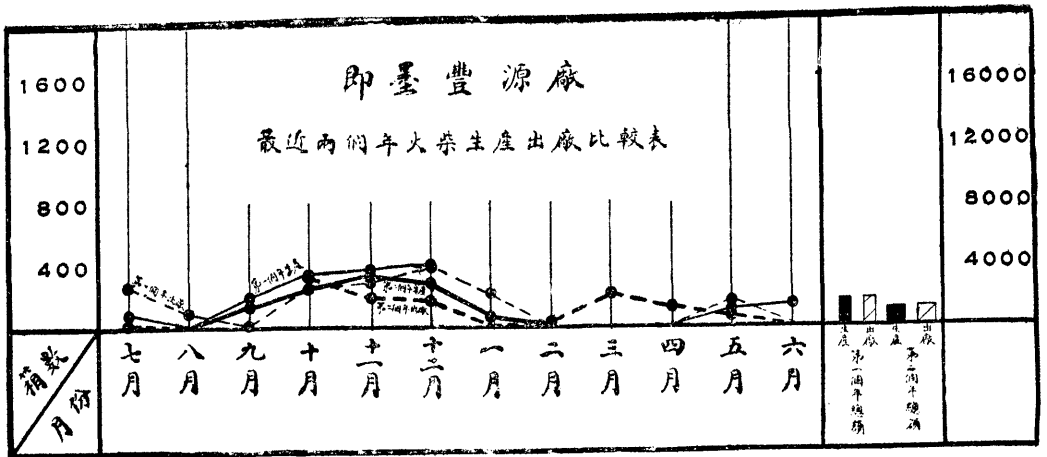 即墨豐源廠
最近兩個年火柴生產出廠比較表
1600
1200
800
400
16000
12000
8000
4000
第一個年出廠
第一個年生產
第二個年生產
第二個年出廠
箱數
月份
七月
八月
九月
十月
十一月
十二月
一月
二月
三月
四月
五月
六月
生產
出廠
生產
出廠
第一個年總額
第二個年總額